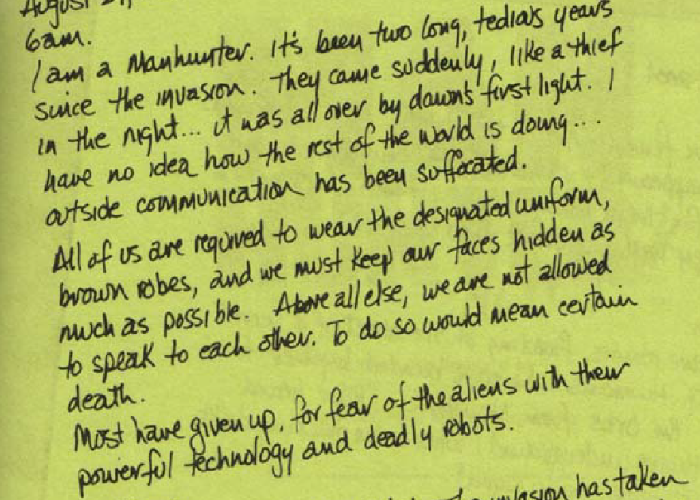 August 2
6am.
I am a Manhunter. It's been two long, tedious years
since the invasion. They came suddenly, like a thief
in the night... it was all over by dawn's first light. I
have no idea how the rest of the world is doing...
outside communication has been suffocated.
All of us are required to wear the designated uniform,
brown robes, and we must keep our faces hidden as
much as possible. Above all else, we are not allowed
to speak to each other. To do so would mean certain
death.
Most have given up, for fear of the aliens with their
powerful technology and deadly robots.
invasion has taken